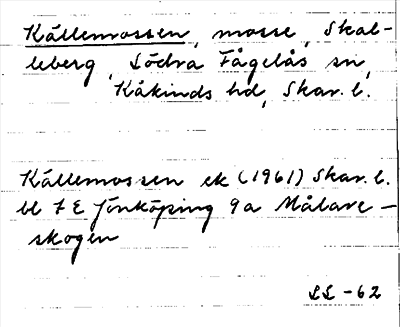 Källemossen, mosse, Skal-
leberg, Södra Fågelås sn,
Kåkinds hd, Skar. l.
Källemossen ek (1961) Skar. l.
bl 7 E Jönköping 9a Målare-
skogen
LL -62